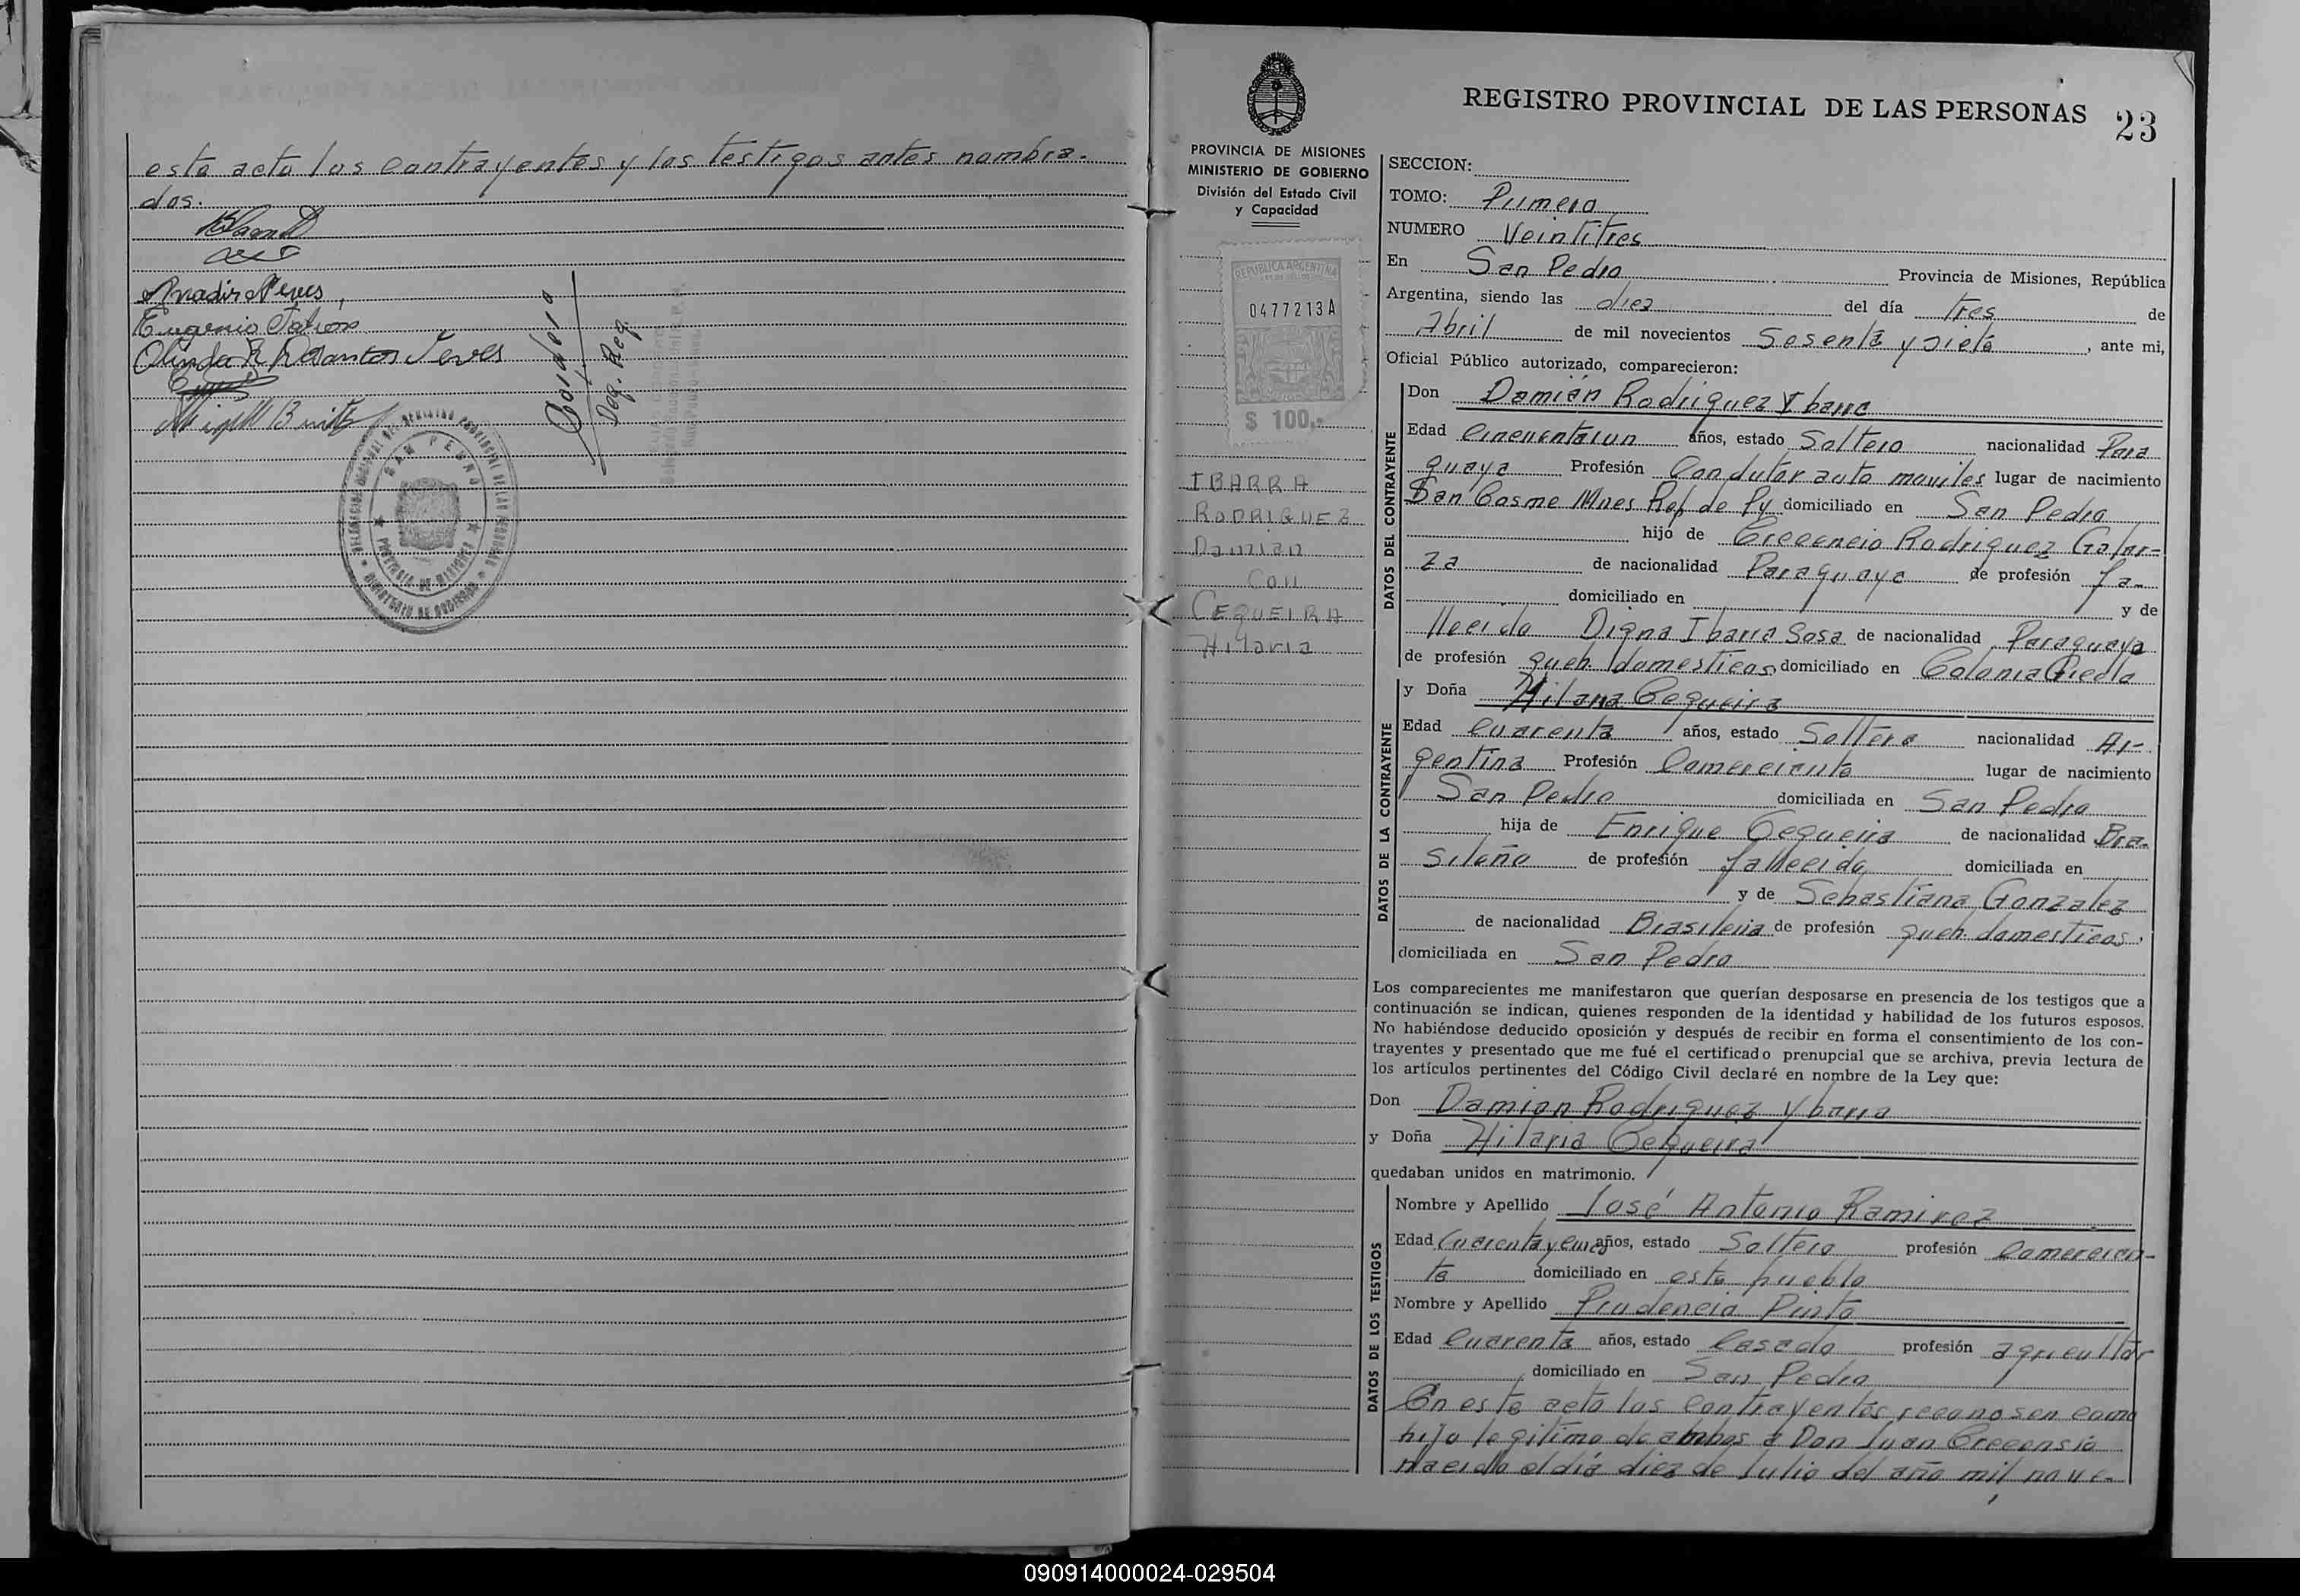 esta acto los contrayentes y los testigos antes nombra-
dos.
Anadir Neves,
Eugenio
Olinda R Dosantos Neves
Miguel Benitez
Cordero
Deg. Reg.
DELEGACION SECCIONAL DEL REGISTRO PROVINCIAL DE LAS PERSONAS
SAN PEDRO
PROVINCIA DE MISIONES
MINISTERIO DE GOBIERNO
REGISTRO PROVINCIAL DE LAS PERSONAS 23
PROVINCIA DE MISIONES
MINISTERIO DE GOBIERNO
División del Estado Civil
y Capacidad
REPUBLICA ARGENTINA
0477213A
$ 100,-
IBARRA
RODRIGUEZ
Damian
Con
CEQUEIRA
Hilaria
SECCION:
TOMO: Primero
NUMERO Veintitres
En San Pedro Provincia de Misiones, República
Argentina, siendo las diez del día tres de
Abril de mil novecientos Sesenta y siete, ante mi,
Oficial Público autorizado, comparecieron:
DATOS DEL CONTRAYENTE
Don Damián Rodriguez Ybarra
Edad Cincuentaiun años, estado Soltero nacionalidad Para
guaya Profesión Condutor auto moviles lugar de nacimiento
San Cosme Mnes Rep de Py domiciliado en San Pedro
hijo de Crecencio Rodriguez Galar-
za de nacionalidad Paraguaya de profesión fa-
domiciliado en y de
llecido Digna Ibarra Sosa de nacionalidad Paraguaya
de profesión queh. domesticos domiciliado en Colonia
DATOS DE LA CONTRAYENTE
y Doña Hilaria Cequeira
Edad Cuarenta años, estado Soltera nacionalidad Ar-
gentina Profesión Comerciante lugar de nacimiento
San Pedro domiciliada en San Pedro
hija de Enrique Cequeira de nacionalidad Bra-
sileña de profesión fallecido domiciliada en
y de Sebastiana Gonzalez
de nacionalidad Brasileña de profesión queh. domesticos.
domiciliada en San Pedro
Los comparecientes me manifestaron que querían desposarse en presencia de los testigos que a
continuación se indican, quienes responden de la identidad y habilidad de los futuros esposos.
No habiéndose deducido oposición y después de recibir en forma el consentimiento de los con-
trayentes y presentado que me fué el certificado prenupcial que se archiva, previa lectura de
los artículos pertinentes del Código Civil declaré en nombre de la Ley que:
Don Damian Rodriguez Ybarra
y Doña Hilaria Cequeira
quedaban unidos en matrimonio.
DATOS DE LOS TESTIGOS
Nombre y Apellido José Antonio Ramirez
Edad Cuarenta y años, estado Soltero profesión Comercian-
te domiciliado en este pueblo
Nombre y Apellido Prudencio Pinto
Edad Cuarenta años, estado Casado profesión agricultor
domiciliado en San Pedro
En este acto los contrayentes reconosen como
hijo legitimo de ambos a Don Juan Crecensio
nacido el dia diez de Julio del año mil nove-
090914000024-029504